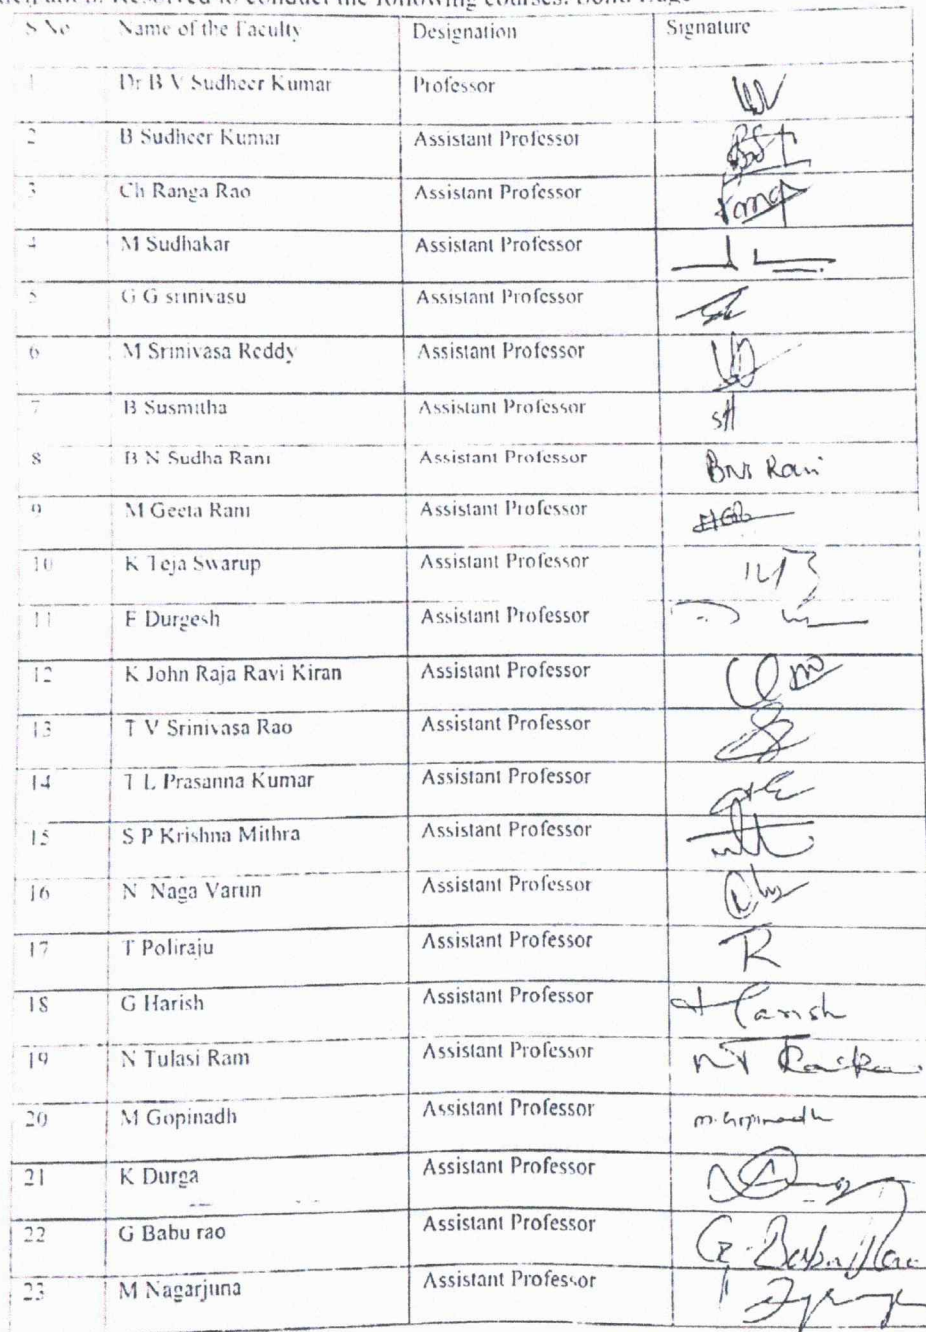 Resolved to conduct the following courses.
S No Name of the Faculty Designation Signature
1 Dr B V Sudheer Kumar Professor
2 B Sudheer Kumar Assistant Professor
3 Ch Ranga Rao Assistant Professor
4 M Sudhakar Assistant Professor
5 G G srinivasu Assistant Professor
6 M Srinivasa Reddy Assistant Professor
7 B Susmitha Assistant Professor
8 B N Sudha Rani Assistant Professor BNS Rani
9 M Geeta Rani Assistant Professor
10 K Teja Swarup Assistant Professor
11 E Durgesh Assistant Professor
12 K John Raja Ravi Kiran Assistant Professor
13 T V Srinivasa Rao Assistant Professor
14 T L Prasanna Kumar Assistant Professor
15 S P Krishna Mithra Assistant Professor
16 N Naga Varun Assistant Professor
17 T Poliraju Assistant Professor
18 G Harish Assistant Professor Harish
19 N Tulasi Ram Assistant Professor
20 M Gopinadh Assistant Professor M. Gopinadh
21 K Durga Assistant Professor
22 G Babu rao Assistant Professor G. Babu Rao
23 M Nagarjuna Assistant Professor